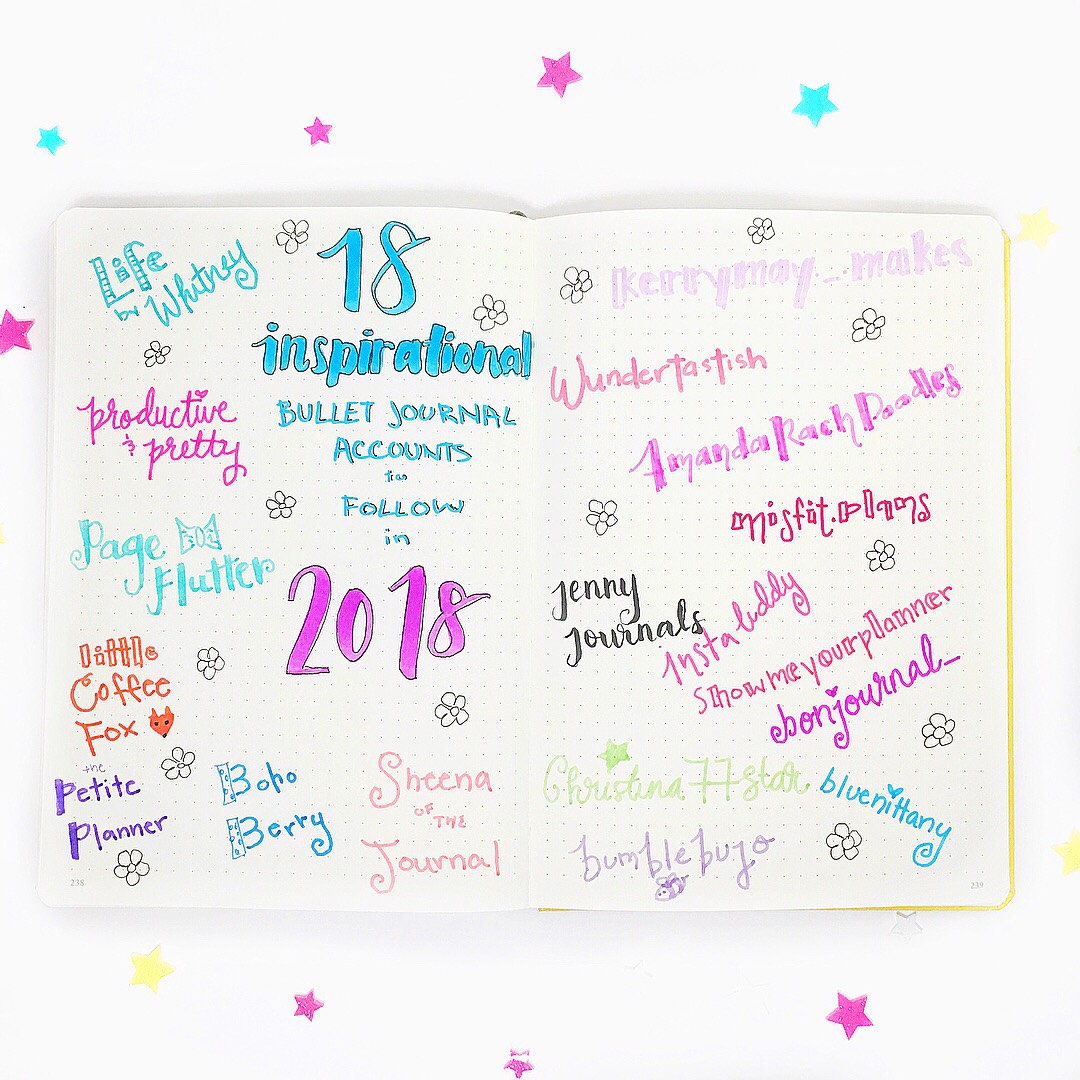 18
inspirational
BULLET JOURNAL
ACCOUNTS
to
FOLLOW
in
2018
Life
by Whitney
productive
& pretty
Page
Flutter
little
Coffee
Fox
the
Petite
Planner
Boho
Berry
Sheena
OF THE
Journal
238
kerrymay._.makes
Wundertastish
AmandaRachDoodles
misfit.plans
Jenny
Journals
Insta biddy
Showmeyourplanner
bonjournal_
Christina77star
bluenittany
bumblebujo
239